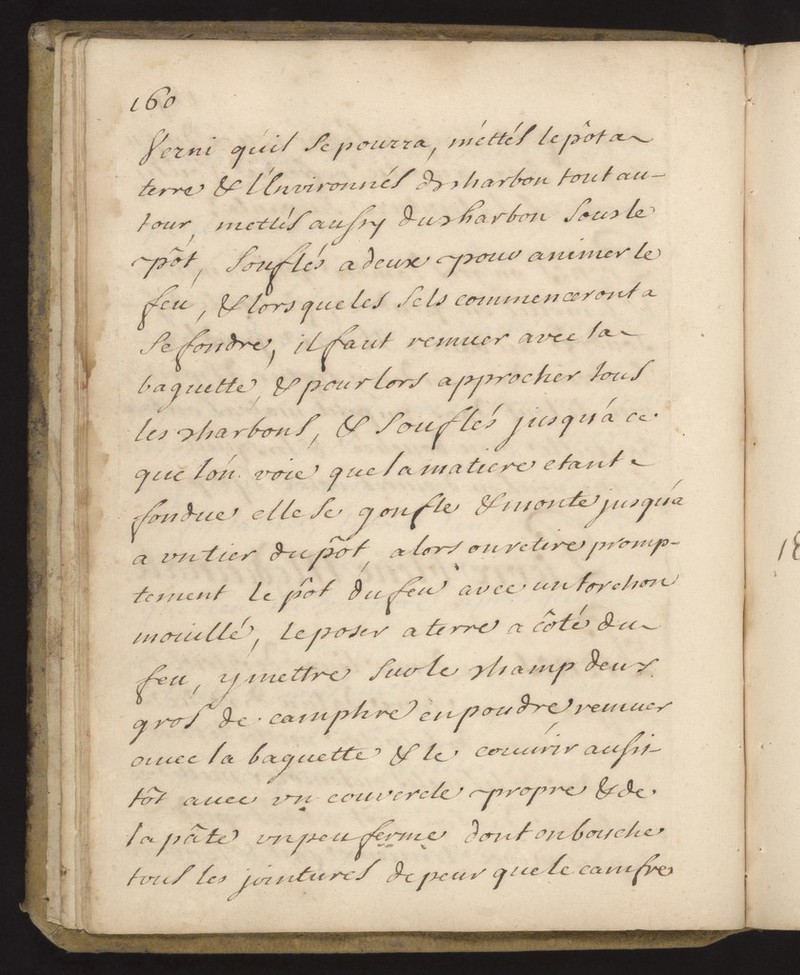 160
Verni qu'il se pourra, mettés le pôt a
terre & l'Environnés de charbon tout au-
tour, mettés aussy du charbon sous le
pôt, souflés a deux pour animer le
feu, & lorsque les sels commenceront a
se fondre, il faut remuer avec la
baguette, & pour lors approcher tous
les charbons, & souflés jusqu'a ce
que l'on voie que la matiere etant
fondue elle se gonfle & monte jusqu'a
a un tier du pôt, alors on retire promp-
tement le pôt du feu avec un torchon
mouillé, le poser a terre a côté du
feu, y mettre sur le champ deux
gros de camphre en poudre remuer
avec la baguette & le couvrir aussi-
tôt avec un couvercle propre & de
la pâte un peu ferme dont on bouche
tous les jointures de peur que le camfre
18